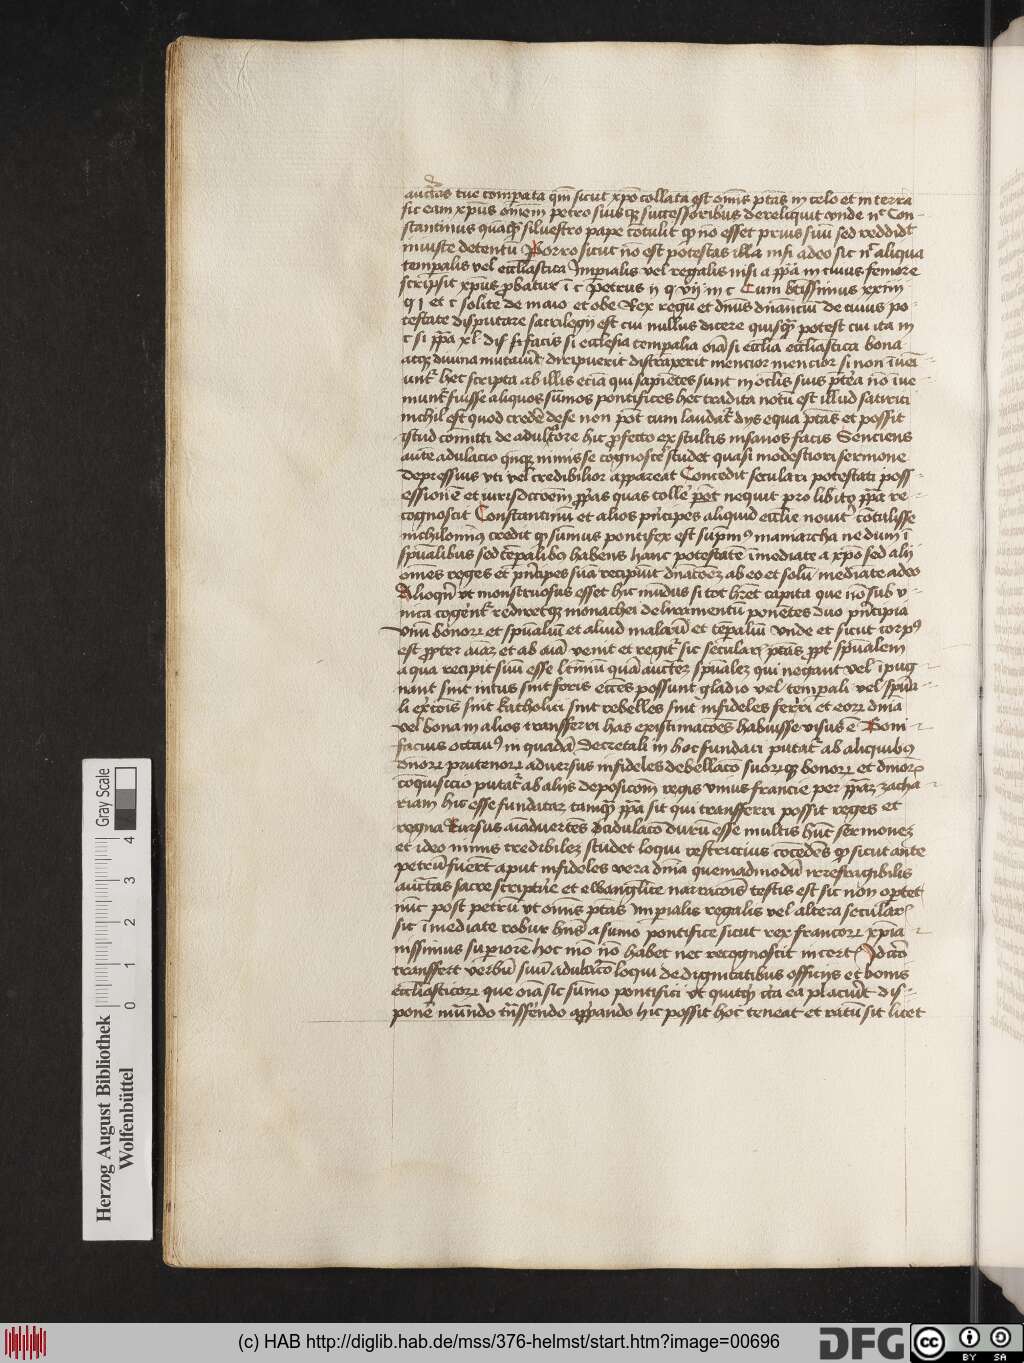 auctas tue compata qm sicut xpo collata est omis ptas in celo et in terra
sic eam xpus omem petro suisqz successoribus dereliquit unde nec Con-
stantinus quicqz silvestro pape cotulit qp no esset prius suu sed reddidit
iniuste detentu Porro sicut no est potestas illa nisi adeo sic nec aliqua
tempalis vel ecclastica Impialis vel regalis nisi a papa in cuius femore
scripsit xpus probatur i c Petrus ii q vij in c Cum btissimus xxiiii
q j et c solite de maio et obe Rex regu et dnus dnanciu de cuius po-
testate disputare sacrilegii est cui nullus dicere quisqz potest cui ita
c si papa xl dis si facis si ecclesia tempalia oia si ecclia ecclastica bona
atqz divina mutavit diripuerit distraxerit mencior mencior si non
hec scripta ab illis ecia qui sapietes sunt in oclis suis ptea no ive-
nunt fuisse aliquos sumos pontifices hec tradita notu est illud satirici
nichil est quod crede dese non pot cum laudat dijs equa ptas et possit
istud comitti de adulatore hic profecto ex stultis insanos facis Senciens
aute adulacio minus se cognosce studet quasi modestiori sermone
depressius uti vel credibilior appareat Concedit seculari potestati poss-
essione et iurisdictoem ppas quas tolle pot nequit pro libito papa re-
cognoscit Constantinu et alios pncipes aliquid ecclie novit cotulisse
nichilomin9 credit qp sumus pontifex est supm9 maniarcha ne dum i
spualibus sed tepalibo habens hanc potestate imediate a xpo sed alij
omes reges et pncipes sua recipiut dnacoez ab eo et solu mediate adeo
Alioqn ut monstruosus esset hic mudus si tot hret capita que no sub u-
nica rediretqz monachei deliramentu ponetes duo pncipia
unu bonor et spualiu et aliud malaru et tepaliu unde et sicut corp9
est ppter aiaz et ab aia venit et regit sic seculari ptas ppt spualem
a qua recipit suu esse ltimu qua auctez spualez qui negant vel ipug-
nant sint intus sint foris eccies possunt gladio vel tempali vel spua-
li exiois sint katholici sint rebelles sint infideles feriri et eor dnia
vel bona in alios transfferri has existimacoes habuisse visus e Boni-
facius octav9 in quada decretali in hoc fundari putat ab aliquib9
dnor prutenor adversus infideles debellaco suorqz bonor et dnior
coquisicio putat ab alijs deposicom regis unius francie per papaz zacha-
riam hic esse fundatar tamqz papa sit qui transfferri possit reges et
regna Rursus aiadvertes adulaco duru esse multis hunc sermonez
et ideo minus credibilez studet loqui restrictius cocedes qp sicut ante
petru fuert aput infideles vera dnia quemadmodu irrefragibilis
auctas sacre scripture et ewanglice narracois testis est sic non oportet
nuc post petru ut omis ptas Impialis regalis vel altera secular
sic imediate robur hns a sumo pontifice sicut rex francor xpia-
nissimus supiore hoc mo no habet nec recognoscit
transffert verbu suu adulaco loqui de dignitatibus officijs et bonis
ecclasticor que oia sic sumo pontifici ut quitqz cta ea placuit dis-
pone mundo tnsfendo appando hic possit hoc teneat et ratu sit licet
Gray Scale
0 1 2 3 4
Herzog August Bibliothek
Wolfenbüttel
(c) HAB http://diglib.hab.de/mss/376-helmst/start.htm?image=00696
DFG
cc
BY SA